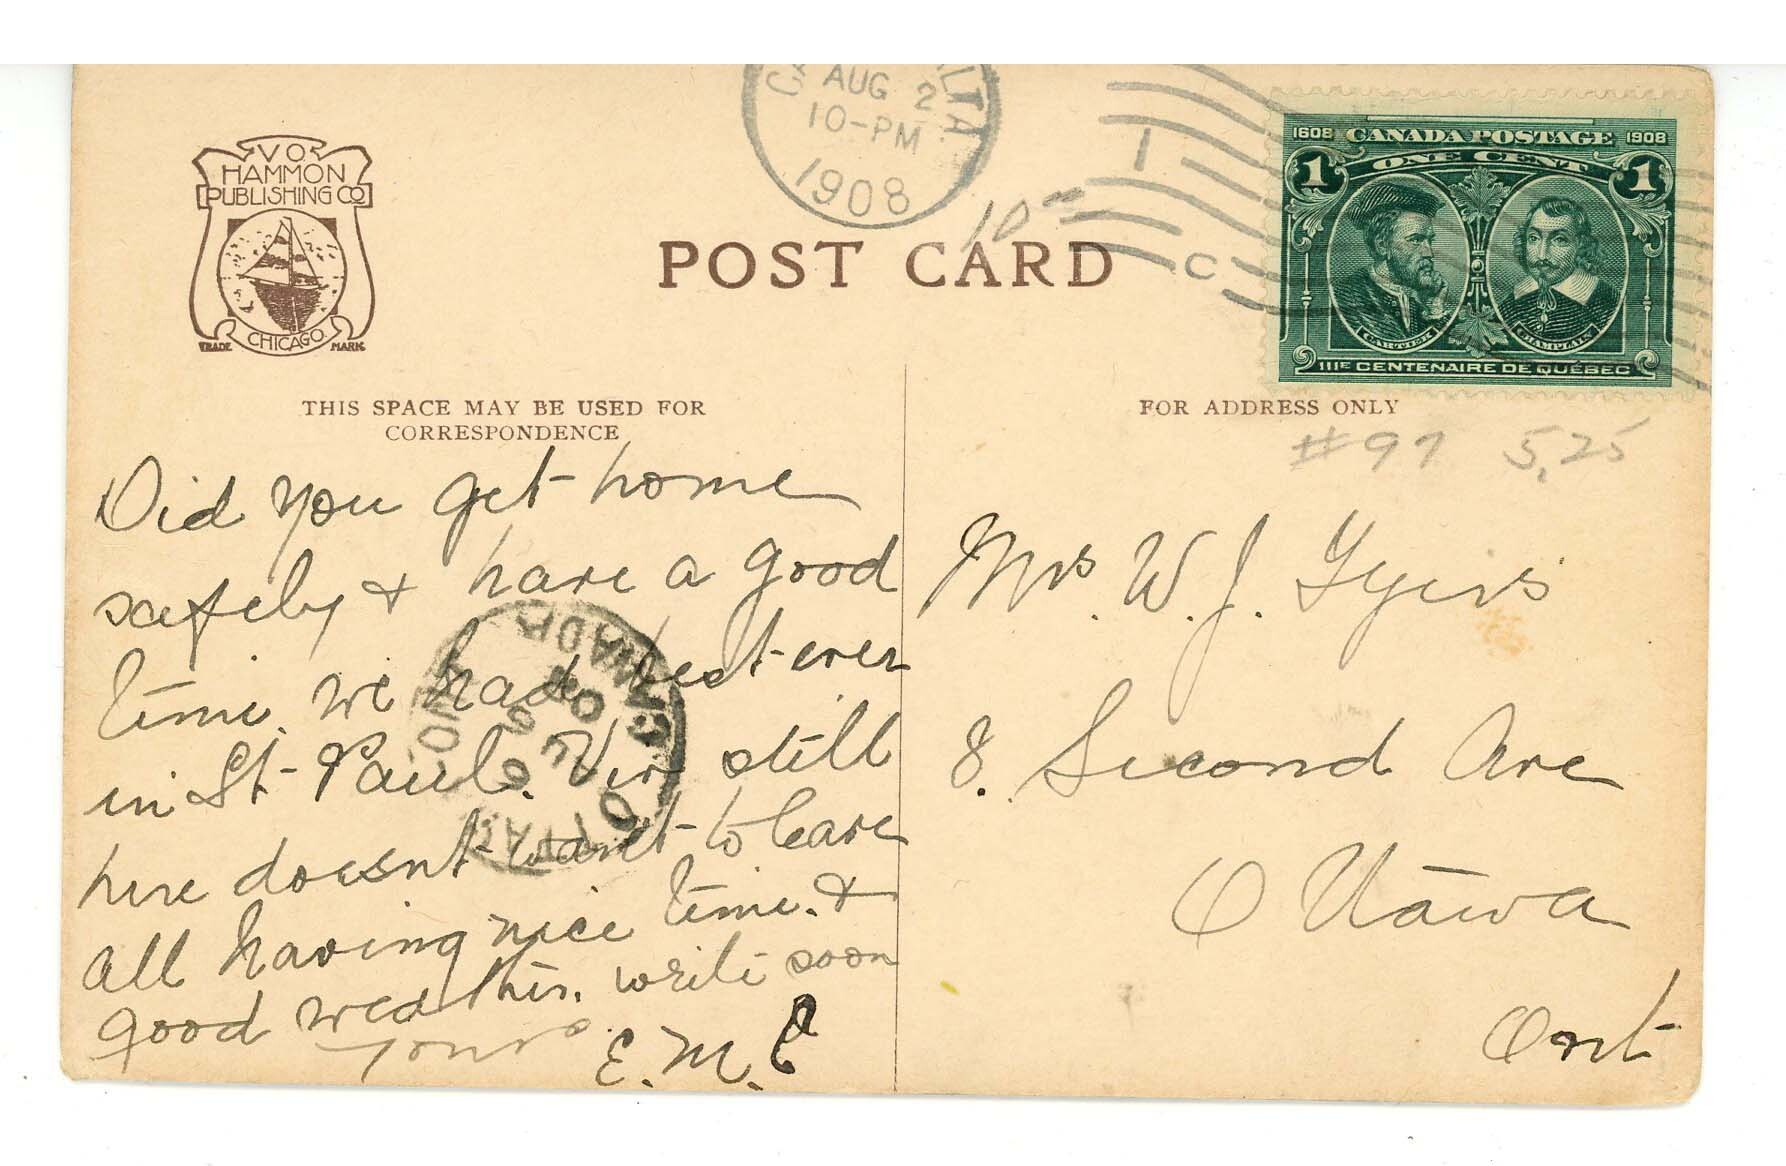 V.O.
HAMMON
PUBLISHING CO
CHICAGO.
TRADE MARK
AUG 2
10-PM
1908
ALTA.
10
C
1608 CANADA POSTAGE 1908
1 ONE CENT 1
CARTIER CHAMPLAIN
IIIE CENTENAIRE DE QUÉBEC
POST CARD
THIS SPACE MAY BE USED FOR
CORRESPONDENCE
FOR ADDRESS ONLY
#97 5.25
Did you get home
safely & have a good
time. we had best ever
in St. Paul. Vir still
here doesnt want to leave
all having nice time. &
good weather. write soon
Yours E.M.
OTTAWA
CANADA
Mrs. W. J.
8. Second Ave
Ottawa
Ont